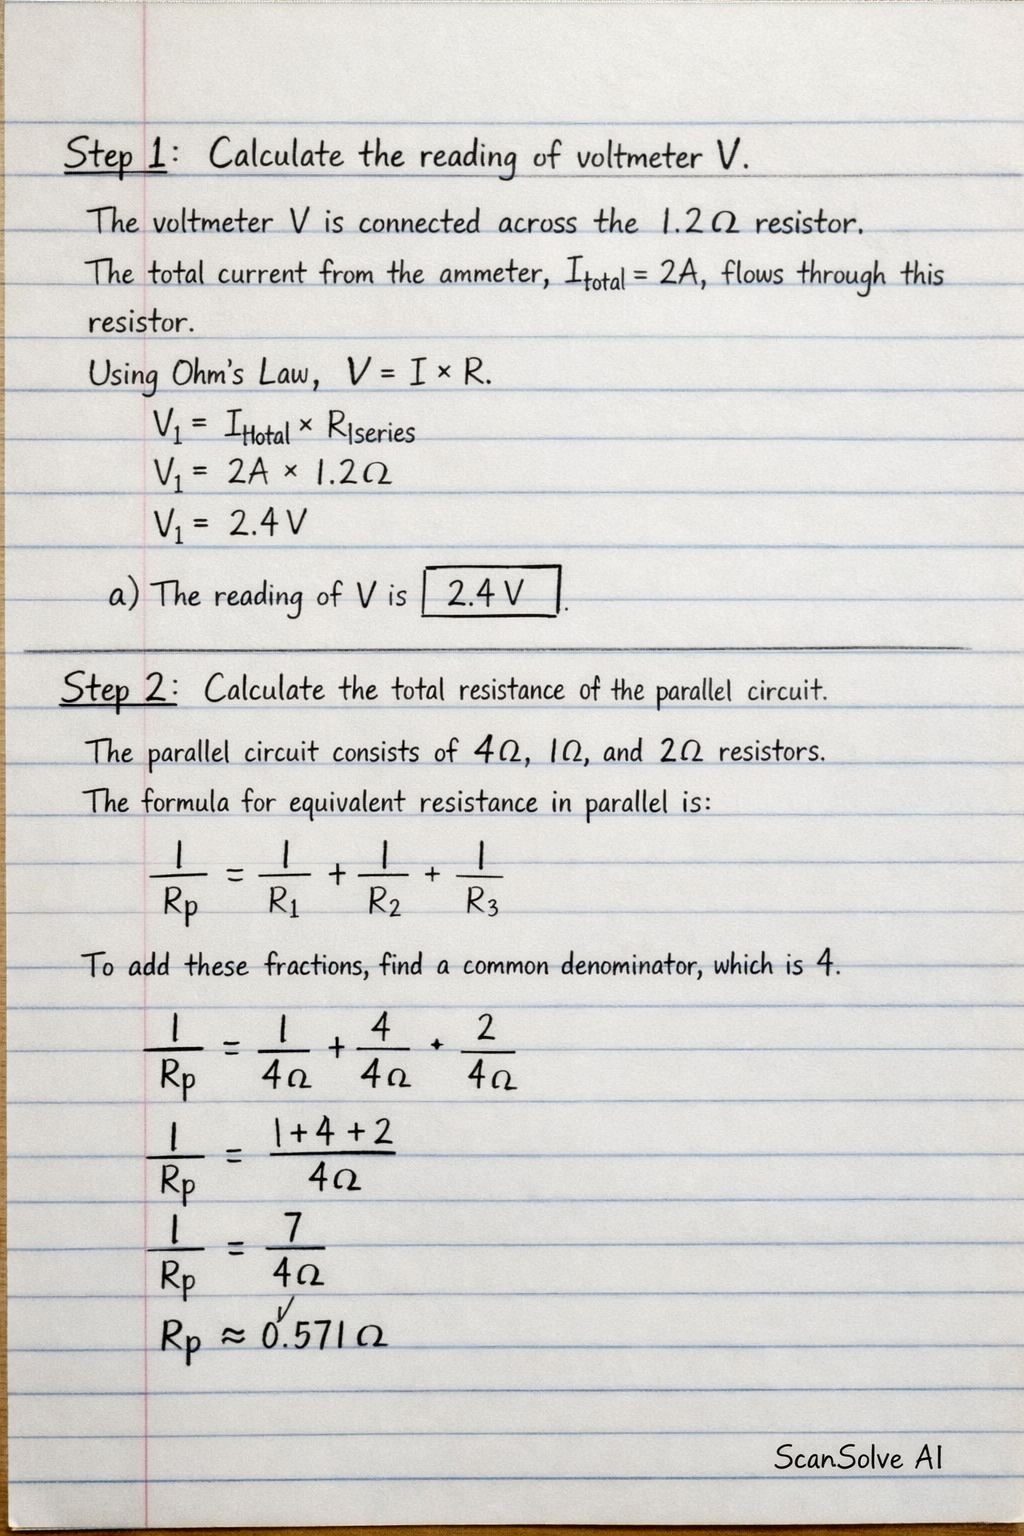 Step 1: Calculate the reading of voltmeter V.
The voltmeter V is connected across the 1.2Ω resistor.
The total current from the ammeter, I_total = 2A, flows through this
resistor.
Using Ohm's Law, V = I × R.
V₁ = I_Htotal × R_1series
V₁ = 2A × 1.2Ω
V₁ = 2.4 V
a) The reading of V is 2.4 V.
Step 2: Calculate the total resistance of the parallel circuit.
The parallel circuit consists of 4Ω, 1Ω, and 2Ω resistors.
The formula for equivalent resistance in parallel is:
1/Rp = 1/R₁ + 1/R₂ + 1/R₃
To add these fractions, find a common denominator, which is 4.
1/Rp = 1/4Ω + 4/4Ω + 2/4Ω
1/Rp = (1+4+2)/4Ω
1/Rp = 7/4Ω
Rp ≈ 0.571Ω
ScanSolve AI